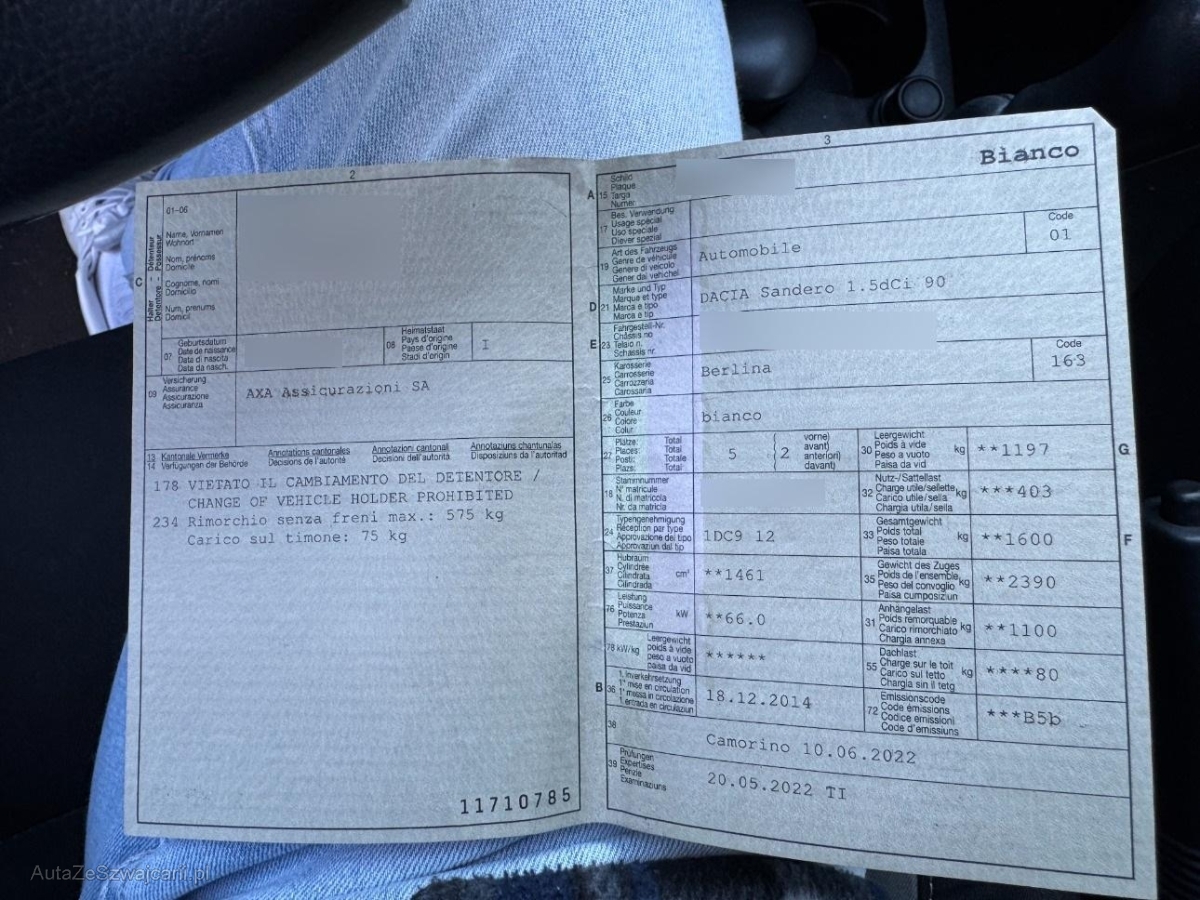 2
01-06
Halter - Détenteur
Detentore - Possessur
C
Name, Vornamen
Wohnort
Nom, prénoms
Domicile
Cognome, nomi
Domicilio
Num, prenums
Domicil
07
Geburtsdatum
Date de naissance
Data di nascita
Data da nasch.
08
Heimatstaat
Pays d'origine
Paese d'origine
Stadi d'origin
I
09
Versicherung
Assurance
Assicurazione
Assicuranza
AXA Assicurazioni SA
13 Kantonale Vermerke Annotations cantonales Annotazioni cantonali Annotaziuns chantunalas
14 Verfügungen der Behörde Décisions de l'autorité Decisioni dell'autorità Disposiziuns da l'autoritad
178 VIETATO IL CAMBIAMENTO DEL DETENTORE /
CHANGE OF VEHICLE HOLDER PROHIBITED
234 Rimorchio senza freni max.: 575 kg
Carico sul timone: 75 kg
11710785
3
Bianco
A 15
Schild
Plaque
Targa
Numer
17
Bes. Verwendung
Usage spécial
Uso speciale
Diever spezial
19
Art des Fahrzeugs
Genre de véhicule
Genere di veicolo
Gener dal vehichel
Automobile
Code
01
D 21
Marke und Typ
Marque et type
Marca e tipo
Marca e tip
DACIA Sandero 1.5dCi 90
E 23
Fahrgestell-Nr.
Châssis no
Telaio n.
Schassis nr.
25
Karosserie
Carrosserie
Carrozzeria
Carossaria
Berlina
Code
163
26
Farbe
Couleur
Colore
Colur
bianco
27
Plätze: Total
Places: Total
Posti: Totale
Plazs: Total
5
2
vorne)
avant)
anteriori)
davant)
30
Leergewicht
Poids à vide
Peso a vuoto
Paisa da vid
kg
**1197
G
18
Stammnummer
N° matricule
N. di matricola
Nr. da matricla
32
Nutz-/Sattellast
Charge utile/sellette
Carico utile/sella
Chargia utila/sella
kg
***403
24
Typengenehmigung
Réception par type
Approvazione del tipo
Approvaziun dal tip
1DC9 12
33
Gesamtgewicht
Poids total
Peso totale
Paisa totala
kg
**1600
F
37
Hubraum
Cylindrée
Cilindrata
Cilindrada
cm³
**1461
35
Gewicht des Zuges
Poids de l'ensemble
Peso del convoglio
Paisa cumposiziun
kg
**2390
76
Leistung
Puissance
Potenza
Prestaziun
kW
**66.0
31
Anhängelast
Poids remorquable
Carico rimorchiato
Chargia annexa
kg
**1100
78 kW/kg
Leergewicht
poids à vide
peso a vuoto
paisa da vid
******
55
Dachlast
Charge sur le toit
Carico sul tetto
Chargia sin il tetg
kg
****80
B 36
1. Inverkehrsetzung
1re mise en circulation
1a messa in circolazione
1. entrada en circulaziun
18.12.2014
72
Emissionscode
Code émissions
Codice emissioni
Code d'emissiuns
***B5b
38
Camorino 10.06.2022
39
Prüfungen
Expertises
Perizie
Examinaziuns
20.05.2022 TI
AutaZeSzwajcarii.pl